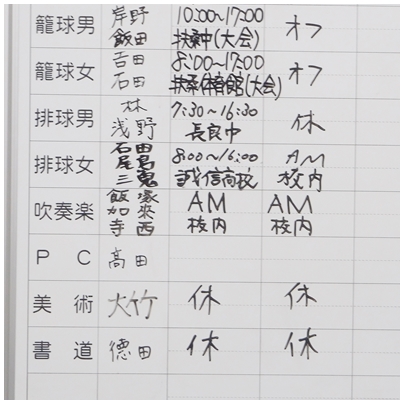 籠球男 岸野 10:00〜17:00 オフ
飯田 扶桑中(大会)
籠球女 吉田 8:00〜17:00 オフ
石田 扶桑体育館(大会)
排球男 林 7:30〜16:30 休
浅野 長良中
排球女 石田 8:00〜16:00 AM
尾島 誠信高校 校内
三鬼
吹奏楽 飯塚 AM AM
加來 校内 校内
寺西
PC 高田
美術 大竹 休 休
書道 德田 休 休